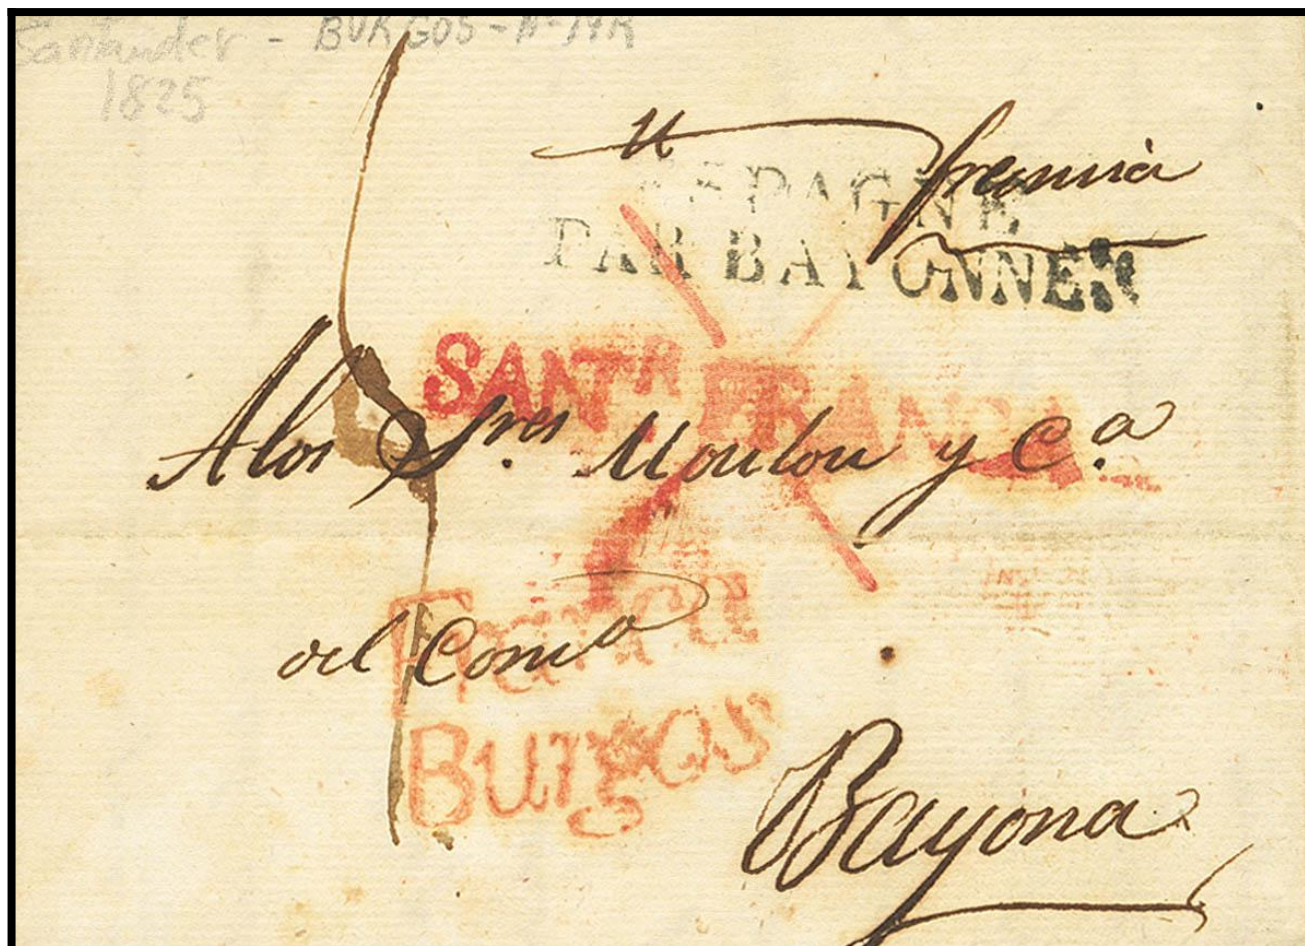 Santander - BURGOS-A-14R
1825
francia
ESPAGNE
PAR BAYONNE
SANT.R FRANCA
A los S.res Moulon y C.a
Franca
del Com.o
Burgos
Bayona